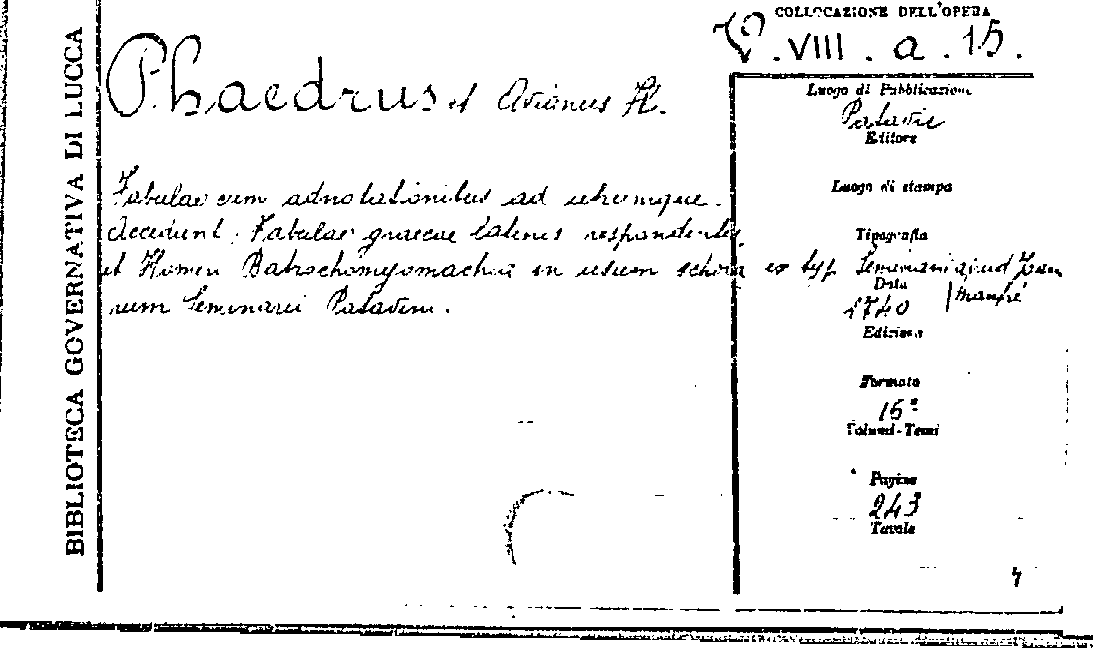 BIBLIOTECA GOVERNATIVA DI LUCCA
Phaedrus et Avianus Fl.
Fabulae cum adnotationibus ad utrumque.
Accedunt Fabulae graecae latinis respondentes
et Homeri Batrochomyomachia in usum schola
rum Seminarii Patavini.
COLLOCAZIONE DELL'OPERA
VIII. a. 15.
Luogo di Pubblicazione
Patavii
Editore
Luogo di stampa
Tipografia
ex typ. Seminarii apud Joan
Manfré
Data
1740
Edizione
Formato
16º
Volumi-Tomi
Pagine
243
Tavole